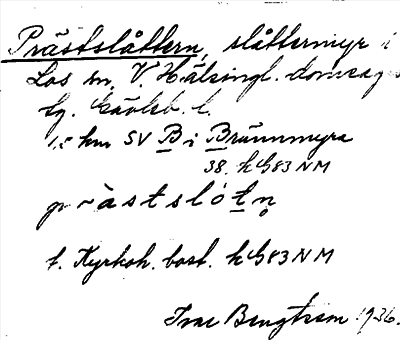 Prästslåttern, slåttermyr i
Los sn, V. Hälsingl. domsaga
tg. Gävleb. l.
1,5 km SV B i Brännmyra
38. h G 83 N M
prästslótn
f. Kyrkoh. bost. h G 83 N M
Ivar Bengtsson 1936.